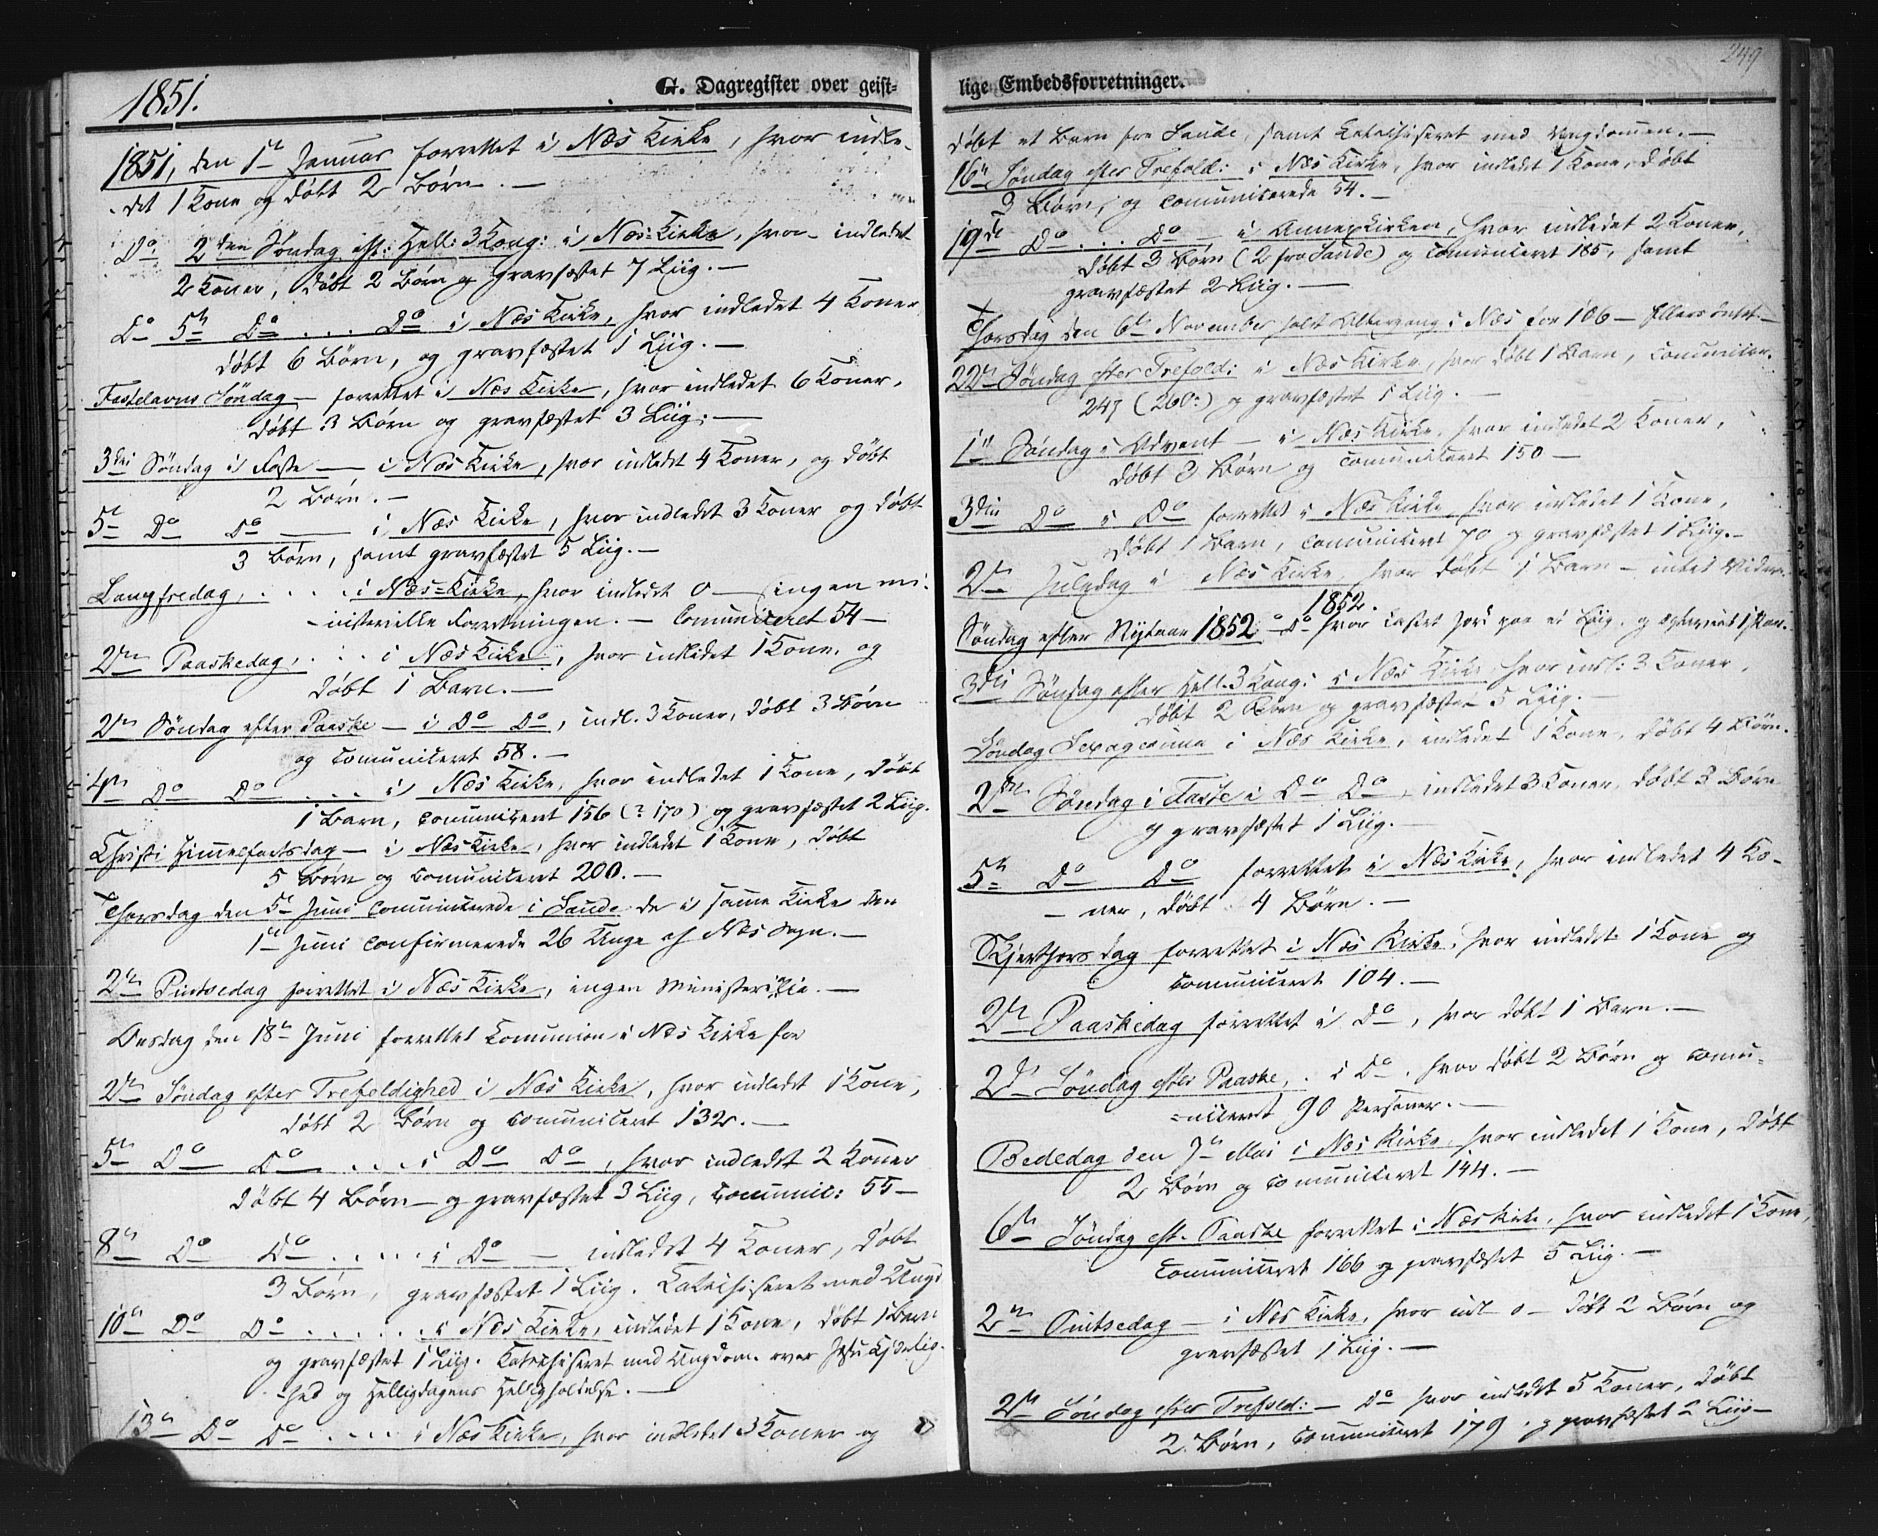 1851.
G. Dagregister over geist-
1851, den 1te Januar forrettet i Næs Kirke, hvor indle-
det 1 Kone og døbt 2 Børn. —
Do 2den Søndag eft: Hell: 3 Kong: i Næs=Kirke, hvor indledet
2 Koner, døbt 2 Børn og gravfæstet 7 Liig. —
Do 5te Do . . . Do i Næs Kirke, hvor indledet 4 Koner
døbt 6 Børn, og gravfæstet 1 Liig. —
Fastelavns Søndag — forrettet i Næs Kirke, hvor indledet 6 Koner,
døbt 3 Børn og gravfæstet 3 Liig. —
3die Søndag i Faste — i Næs Kirke, hvor indledt 4 Koner, og døbt
2 Børn. —
5te Do Do — i Næs Kirke, hvor indledet 3 Koner og døbt
3 Børn, samt gravfæstet 5 Liig. —
Langfredag, . . . . i Næs=Kirke, hvor indledt 0 — ingen mi-
-nisterielle Forretninger. — Comuniceret 54 —
2den Paaskedag, . . . i Næs Kirke, hvor indledet 1 Kone, og
døbt 1 Barn. —
2den Søndag efter Paaske — i Do Do, indl. 3 Koner, døbt 3 Børn
og Comuniceret 58. —
4de Do Do . . . i Næs Kirke, hvor indledet 1 Kone, døbt
1 Barn, Comuniceret 156 (? 170) og gravfæstet 2 Liig.
Christi Himmelfartsdag — i Næs Kirke, hvor indledet 1 Kone, døbt
5 Børn og Comuniceret 200. —
Thorsdag den 5te Juni Comunicerede i Saude de i samme Kirke den
1te Juni Confirmerede 26 Unge af Næs Sogn. —
2den Pintsedag forrettet i Næs Kirke, ingen Ministerialia. —
Onsdag den 18de Juni forrettet Comunion i Næs Kirke for
2den Søndag efter Trefoldighed i Næs Kirke, hvor indledt 1 Kone,
døbt 2 Børn og Comuniceret 132. —
5te Do Do . . . i Do Do, hvor indledt 2 Koner
døbt 4 Børn — og gravfæstet 3 Liig, Comunic: 55 —
8de Do Do . . . . i Do — indledet 4 Koner, døbt
3 Børn, gravfæstet 1 Liig. Catechiseret med Ungd
10de Do Do . . . . . i Næs Kirke, indledet 1 Kone, døbt 1 Barn
og gravfæstet 1 Liig. Catechiseret med Ungdom. over Jesu Kjærlig-
-hed og Helligdagens Helligholdelse. —
13de Do Do . . . . i Næs Kirke, hvor indledet 3 Koner og
249
lige Embedsforretninger.
døbt et Barn fra Saude, samt Catechiseret med Ungdommen. —
16de Søndag efter Trefold: i Næs Kirke, hvor indledet 1 Kone, døbt
3 Børn, og Comunicerede 54. —
19de Do . . . Do — i Annexkirken, hvor indledet 2 Koner,
døbt 3 Børn (2 fra Saude) og Comuniceret 185, samt
gravfæstet 2 Liig. —
Thorsdag den 6te November holdt Altergang i Næs for 106 — Ellers Intet —
22de Søndag efter Trefold: i Næs Kirke, hvor døbt 1 Barn, Comunicer.
247 (260?) og gravfæstet 1 Liig. —
1te Søndag i Advent — i Næs Kirke, hvor indledet 2 Koner,
døbt 3 Børn og Comuniceret 150 —
3die Do i Do forrettet i Næs Kirke, hvor indledet 1 Kone,
døbt 1 Barn, Comuniceret 70 og gravfæstet 1 Liig. —
2den Juledag i Næs Kirke hvor døbt 1 Barn — intet Videre.
1852.
Søndag efter Nytaar 1852 — Do hvor castet Jord paa et Liig, og
3die Søndag efter Hell. 3 Kong: i Næs Kirke, hvor indl: 3 Koner,
døbt 2 Børn og gravfæstet 5 Liig. —
Søndag Sexagesima i Næs Kirke, indledet 1 Kone, døbt 4 Børn.
2den Søndag i Faste i Do Do, indledet 3 Koner, døbt 3 Børn
og gravfæstet 1 Liig. —
5te Do Do forrettet i Næs Kirke, hvor indledet 4 Ko-
-ner, døbt 4 Børn. —
Skjerthorsdag forrettet i Næs Kirke, hvor indledt 1 Kone og
Comuniceret 104. —
2den Paaskedag forrettet i Do, hvor døbt 1 Barn. —
2den Søndag efter Paaske, . i Do, hvor døbt 2 Børn og Comu-
=niceret 90 Personer. —
Bededag den 7de Mai i Næs Kirke, hvor indledet 1 Kone, døbt
2 Børn og Comuniceret 144. —
6te Søndag eft. Paaske forrettet i Næs Kirke, hvor indledet 1 Kone,
Comuniceret 166 og gravfæstet 5 Liig. —
2den Pintsedag — i Næs Kirke, hvor indl 0 — døbt 2 Børn og
gravfæstet 1 Liig. —
2den Søndag efter Trefold: — Do hvor indledet 5 Koner, døbt
2 Børn, Comuniceret 179, og gravfæstet 2 Liig —